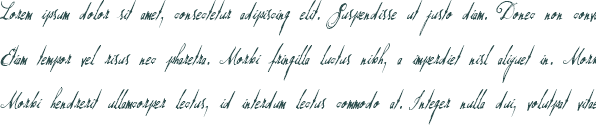 Lorem ipsum dolor sit amet, consectetur adipiscing elit. Suspendisse ut justo diam. Donec non conva
Etiam tempor vel risus nec pharetra. Morbi fringilla luctus nibh, a imperdiet nisl aliquet in. Mor
Morbi hendrerit ullamcorper lectus, id interdum lectus commodo at. Integer nulla dui, volutpat vitae